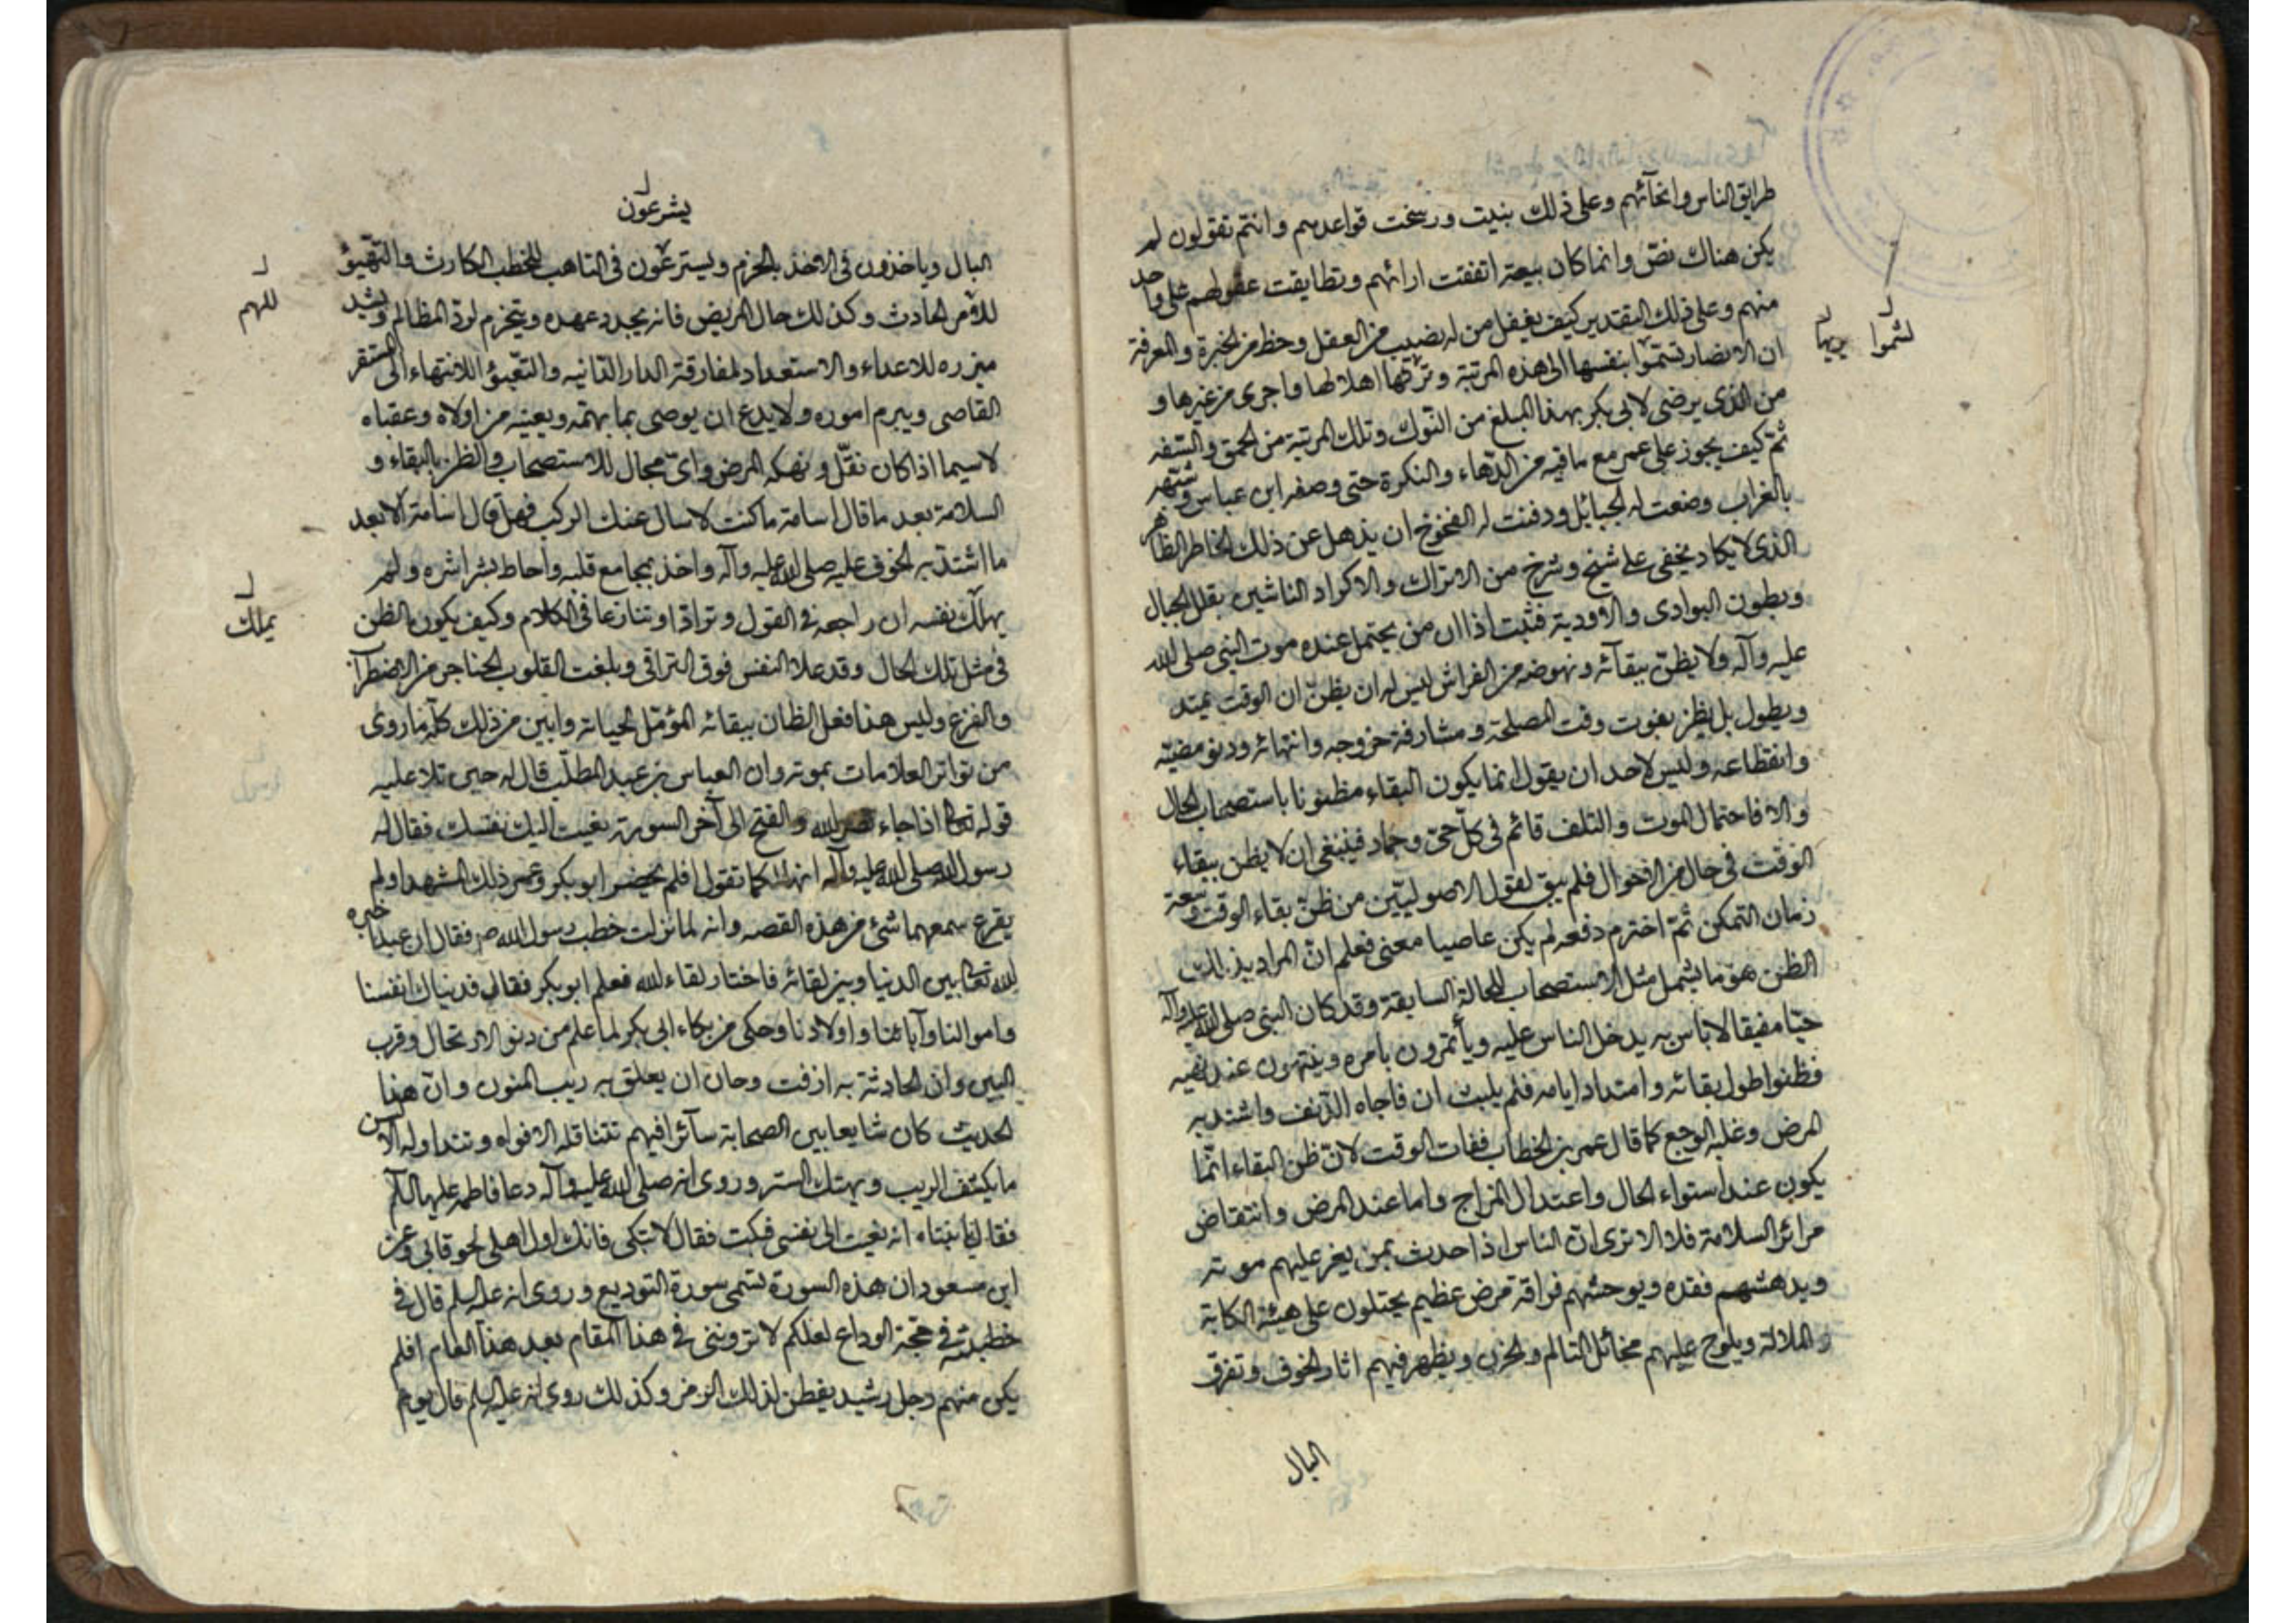 طرايق الناس وانحآئهم وعلى ذلك بنيت ورسخت قواعدهم وانتم تقولون لم
يكن هناك نصّ وانما كان بيعة اتفقت ارائهم وتطابقت عقولهم على واحد
منهم وعلى ذلك التقدير كيف يغفل من له نصيب من العقل وحظ من الخبرة والمعرفة
ان الانصار تسموا بنفسها الى هذه المرتبة وتركها اهلا لها واحرى من غيرها و
من الذى يرضى لابى بكر بهذا المبلغ من النوك وتلك المرتبة من الحمق والسفه
ثم كيف يجوز على عمر مع ما فيه من الدّهاء والنكرة حتى وصفه ابن عباس وشبهه
بالغراب وضعت له الحبائل ودفنت له الفخوخ ان يذهل عن ذلك الخاطر الظاهر
الذى لا يكاد يخفى على شيخ وشرخ من الاتراك والاكراد الناشين بقلل الجبال
وبطون البوادى والاودية فثبت اذا ان من يحتمل عنده موت النبى صلى الله
عليه وآله ولا يظنّ ببقآئه ونهوضه من الفراش ليس له ان يظنّ ان الوقت يمتد
ويطول بل يظن بفوت وقت المصلحة ومشارفة خروجه وانتهائه ودنو مضيّه
وانقطاعه وليس لاحد ان يقول انما يكون البقاء مظنونا باستصحاب الحال
والا فاحتمال الموت والتلف قائم فى كلّ حىّ وجماد فينبغى ان لا يظن ببقاء
الوقت فى حال من الاحوال فلم يبق لقول الاصوليّين من ظنّ بقاء الوقت وسعة
زمان التمكن ثمّ اخترم دفعه لم يكن عاصيا معنى فعلم انّ المراد بذلك
الظن هو ما يشمل مثل الاستصحاب للحالة السابقة وقد كان النبى صلى الله عليه وآله
حيّا مفيقا لا باس به يدخل الناس عليه ويأتمرون بامره وينتهون عند نهيه
فظنوا طول بقائه وامتداد ايامه فلم يلبث ان فاجاه الدّنف واشتد به
المرض وغلبه الوجع كما قال عمر بن الخطاب ففات الوقت لانّ ظن البقاء انّما
يكون عند استواء الحال واعتدال المزاج واما عند المرض وانتقاض
مرائر السلامة فلا الا ترى انّ الناس اذا حدث بمن يعز عليهم موته
ويدهشهم فقده ويوحشهم فراقه مرض عظيم يحتلون على هيئة الكابة
والملالة ويلوح عليهم مخائل التالم والحزن ويظهر فيهم اثار الخوف وتفرق
البال
لشموا
يريها
يشرعون
البال وياخذون فى الاخذ بالحزم ويسترعون فى التاهب للخطب الكارث والتهيؤ
للامر الحادث وكذلك حال المريض فانه يجدد عهده ويتخرم لردّ المظالم ويشد
ميزره للاعداء والاستعداد لمفارقة الدار الفانيه والتعبّؤ للانتهاء الى المستقر
القاصى ويبرم اموره ولا يدع ان يوصى بما يهمّه ويعينه من اولاه وعقباه
لاسيما اذا كان نقّل ونهكه المرض واىّ مجال للاستصحاب والظن بالبقاء و
السلامة بعد ما قال اسامة ما كنت لاسال عنك الركب فهل قال اسامة الا بعد
ما اشتدّ به الخوف عليه صلى الله عليه وآله واخذ بمجامع قلبه واحاط بشراشره ولم
يهلك نفسه ان راجعه فى القول وترادّا وتنازعا فى الكلام وكيف يكون الظن
فى مثل تلك الحال وقد علا النفس فوق التراقى وبلغت القلوب الحناجر من الاضطراب
والفزع وليس هذا فعل الظان ببقائه المؤمّل لحياته وابين من ذلك كلّه ما روى
من تواتر العلامات بموته وان العباس بن عبد المطلّب قال له حين تلا عليه
قوله تعالى اذا جاء نصر الله والفتح الى آخر السورة نعيت اليك نفسك فقال له
رسول الله صلى الله عليه وآله انها لكما تقول افلم يحضر ابو بكر وعمر ذلك المشهد او لم
يقرع سمعهما شئ من هذه القصه وانه لما نزلت خطب رسول الله ص فقال ان عبدا خيره
الله تعالى بين الدنيا وبين لقائه فاختار لقاء الله فعلم ابو بكر فقال فديناك انفسنا
واموالنا وآبائنا واولادنا وحكى من بكاء ابى بكر لما علم من دنو الارتحال وقرب
البين وان الحادثة به ازفت وحان ان يعلق به ريب المنون وان هذا
الحديث كان شايعا بين الصحابة سآئرا فيهم تتناقله الافواه وتتداوله الالسن
ما يكشف الريب ويهتك الستر وروى انه صلى الله عليه وآله دعا فاطمه عليها السلم
فقال يا بنتاه انه نعيت الى نفسى فبكت فقال لا تبكى فانك اول اهلى لحوقا بى وعن
ابن مسعود ان هذه السورة تسمى سورة التوديع وروى انه عليه السلم قال فى
خطبته فى حجة الوداع لعلكم لا تروننى فى هذا المقام بعد هذا العام افلم
يكن منهم رجل رشيد يفطن لذلك الرمز وكذلك روى انه عليه السلم قال يوم
للهم
يملك